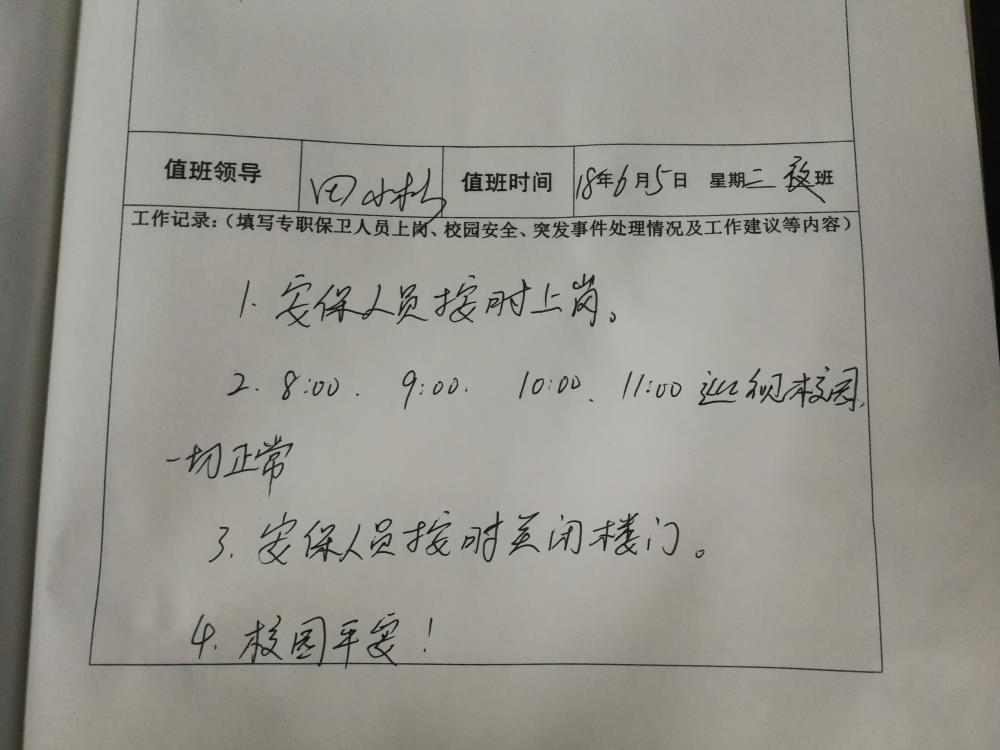 值班领导 田小林 值班时间 18年6月5日 星期二 夜班
工作记录：（填写专职保卫人员上岗、校园安全、突发事件处理情况及工作建议等内容）
1. 安保人员按时上岗。
2. 8:00. 9:00. 10:00、11:00 巡视校园，
一切正常
3. 安保人员按时关闭楼门。
4. 校园平安！